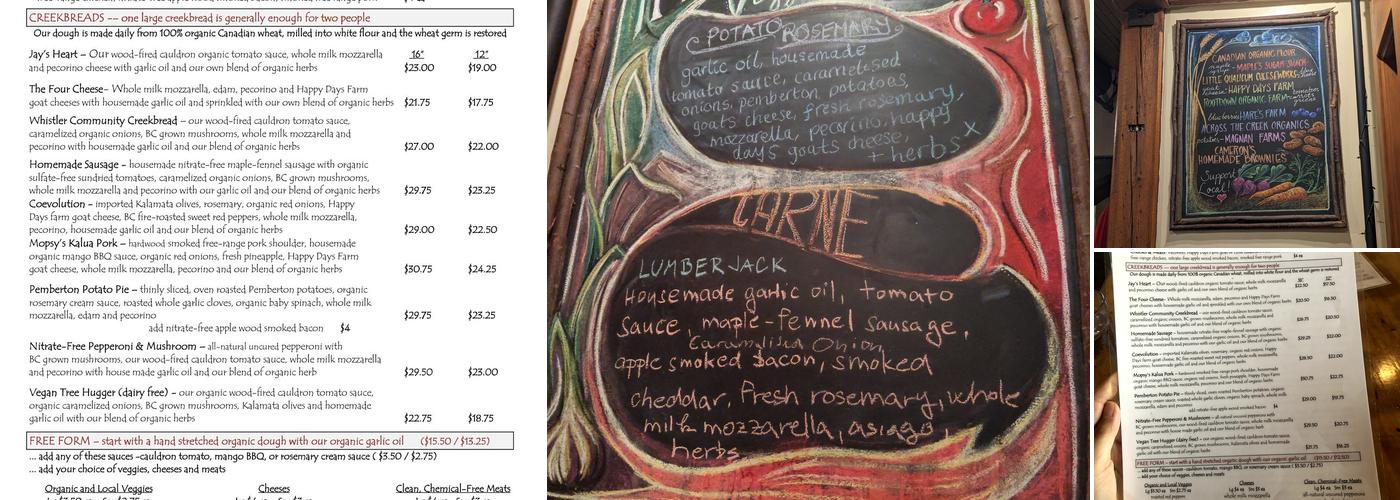 CREEKBREADS -- one large creekbread is generally enough for two people
Our dough is made daily from 100% organic Canadian wheat, milled into white flour and the wheat germ is restored
Jay's Heart – Our wood-fired cauldron organic tomato sauce, whole milk mozzarella 16" 12"
and pecorino cheese with garlic oil and our own blend of organic herbs $23.00 $19.00
The Four Cheese- Whole milk mozzarella, edam, pecorino and Happy Days Farm
goat cheeses with housemade garlic oil and sprinkled with our own blend of organic herbs $21.75 $17.75
Whistler Community Creekbread – our wood-fired cauldron tomato sauce,
caramelized organic onions, BC grown mushrooms, whole milk mozzarella and
pecorino with housemade garlic oil and our blend of organic herbs $27.00 $22.00
Homemade Sausage – housemade nitrate-free maple-fennel sausage with organic
sulfate-free sundried tomatoes, caramelized organic onions, BC grown mushrooms,
whole milk mozzarella and pecorino with our garlic oil and our blend of organic herbs $29.75 $23.25
Coevolution - imported Kalamata olives, rosemary, organic red onions, Happy
Days farm goat cheese, BC fire-roasted sweet red peppers, whole milk mozzarella,
pecorino, housemade garlic oil and our blend of organic herbs $29.00 $22.50
Mopsy's Kalua Pork – hardwood smoked free-range pork shoulder, housemade
organic mango BBQ sauce, organic red onions, fresh pineapple, Happy Days Farm
goat cheese, whole milk mozzarella, pecorino and our blend of organic herbs $30.75 $24.25
Pemberton Potato Pie – thinly sliced, oven roasted Pemberton potatoes, organic
rosemary cream sauce, roasted whole garlic cloves, organic baby spinach, whole milk
mozzarella, edam and pecorino $29.75 $23.25
add nitrate-free apple wood smoked bacon $4
Nitrate-Free Pepperoni & Mushroom – all-natural uncured pepperoni with
BC grown mushrooms, our wood-fired cauldron tomato sauce, whole milk mozzarella
and pecorino with house made garlic oil and our blend of organic herb $29.50 $23.00
Vegan Tree Hugger (dairy free) – our organic wood-fired cauldron tomato sauce,
organic caramelized onions, BC grown mushrooms, Kalamata olives and homemade
garlic oil with our blend of organic herbs $22.75 $18.75
FREE FORM – start with a hand stretched organic dough with our organic garlic oil ($15.50 / $13.25)
... add any of these sauces -cauldron tomato, mango BBQ, or rosemary cream sauce ( $3.50 / $2.75)
... add your choice of veggies, cheeses and meats
Organic and Local Veggies Cheeses Clean, Chemical-Free Meats
POTATO ROSEMARY
garlic oil, housemade
tomato sauce, caramelised
onions, pemberton potatoes,
goats cheese, fresh rosemary,
mozzarella, pecorino, happy
days goats cheese,
+ herbs x
CARNE
LUMBERJACK
Housemade garlic oil, tomato
sauce, maple-fennel sausage,
Caramelised Onion
apple smoked bacon, smoked
cheddar, fresh rosemary, whole
milk mozzarella, asiago,
herbs
CANADIAN ORGANIC FLOUR
maple syrup - MAPLE'S SUGAR SHACK
LITTLE QUALICUM CHEESEWORKS
goat cheese - HAPPY DAYS FARM
ROOTDOWN ORGANIC FARM
blueberries HARE'S FARM
ACROSS THE CREEK ORGANICS
potatoes - MAGNAN FARMS
CAMERON'S
HOMEMADE BROWNIES
Support
Local!
CREEKBREADS -- one large creekbread is generally enough for two people
Our dough is made daily from 100% organic Canadian wheat, milled into white flour and the wheat germ is restored